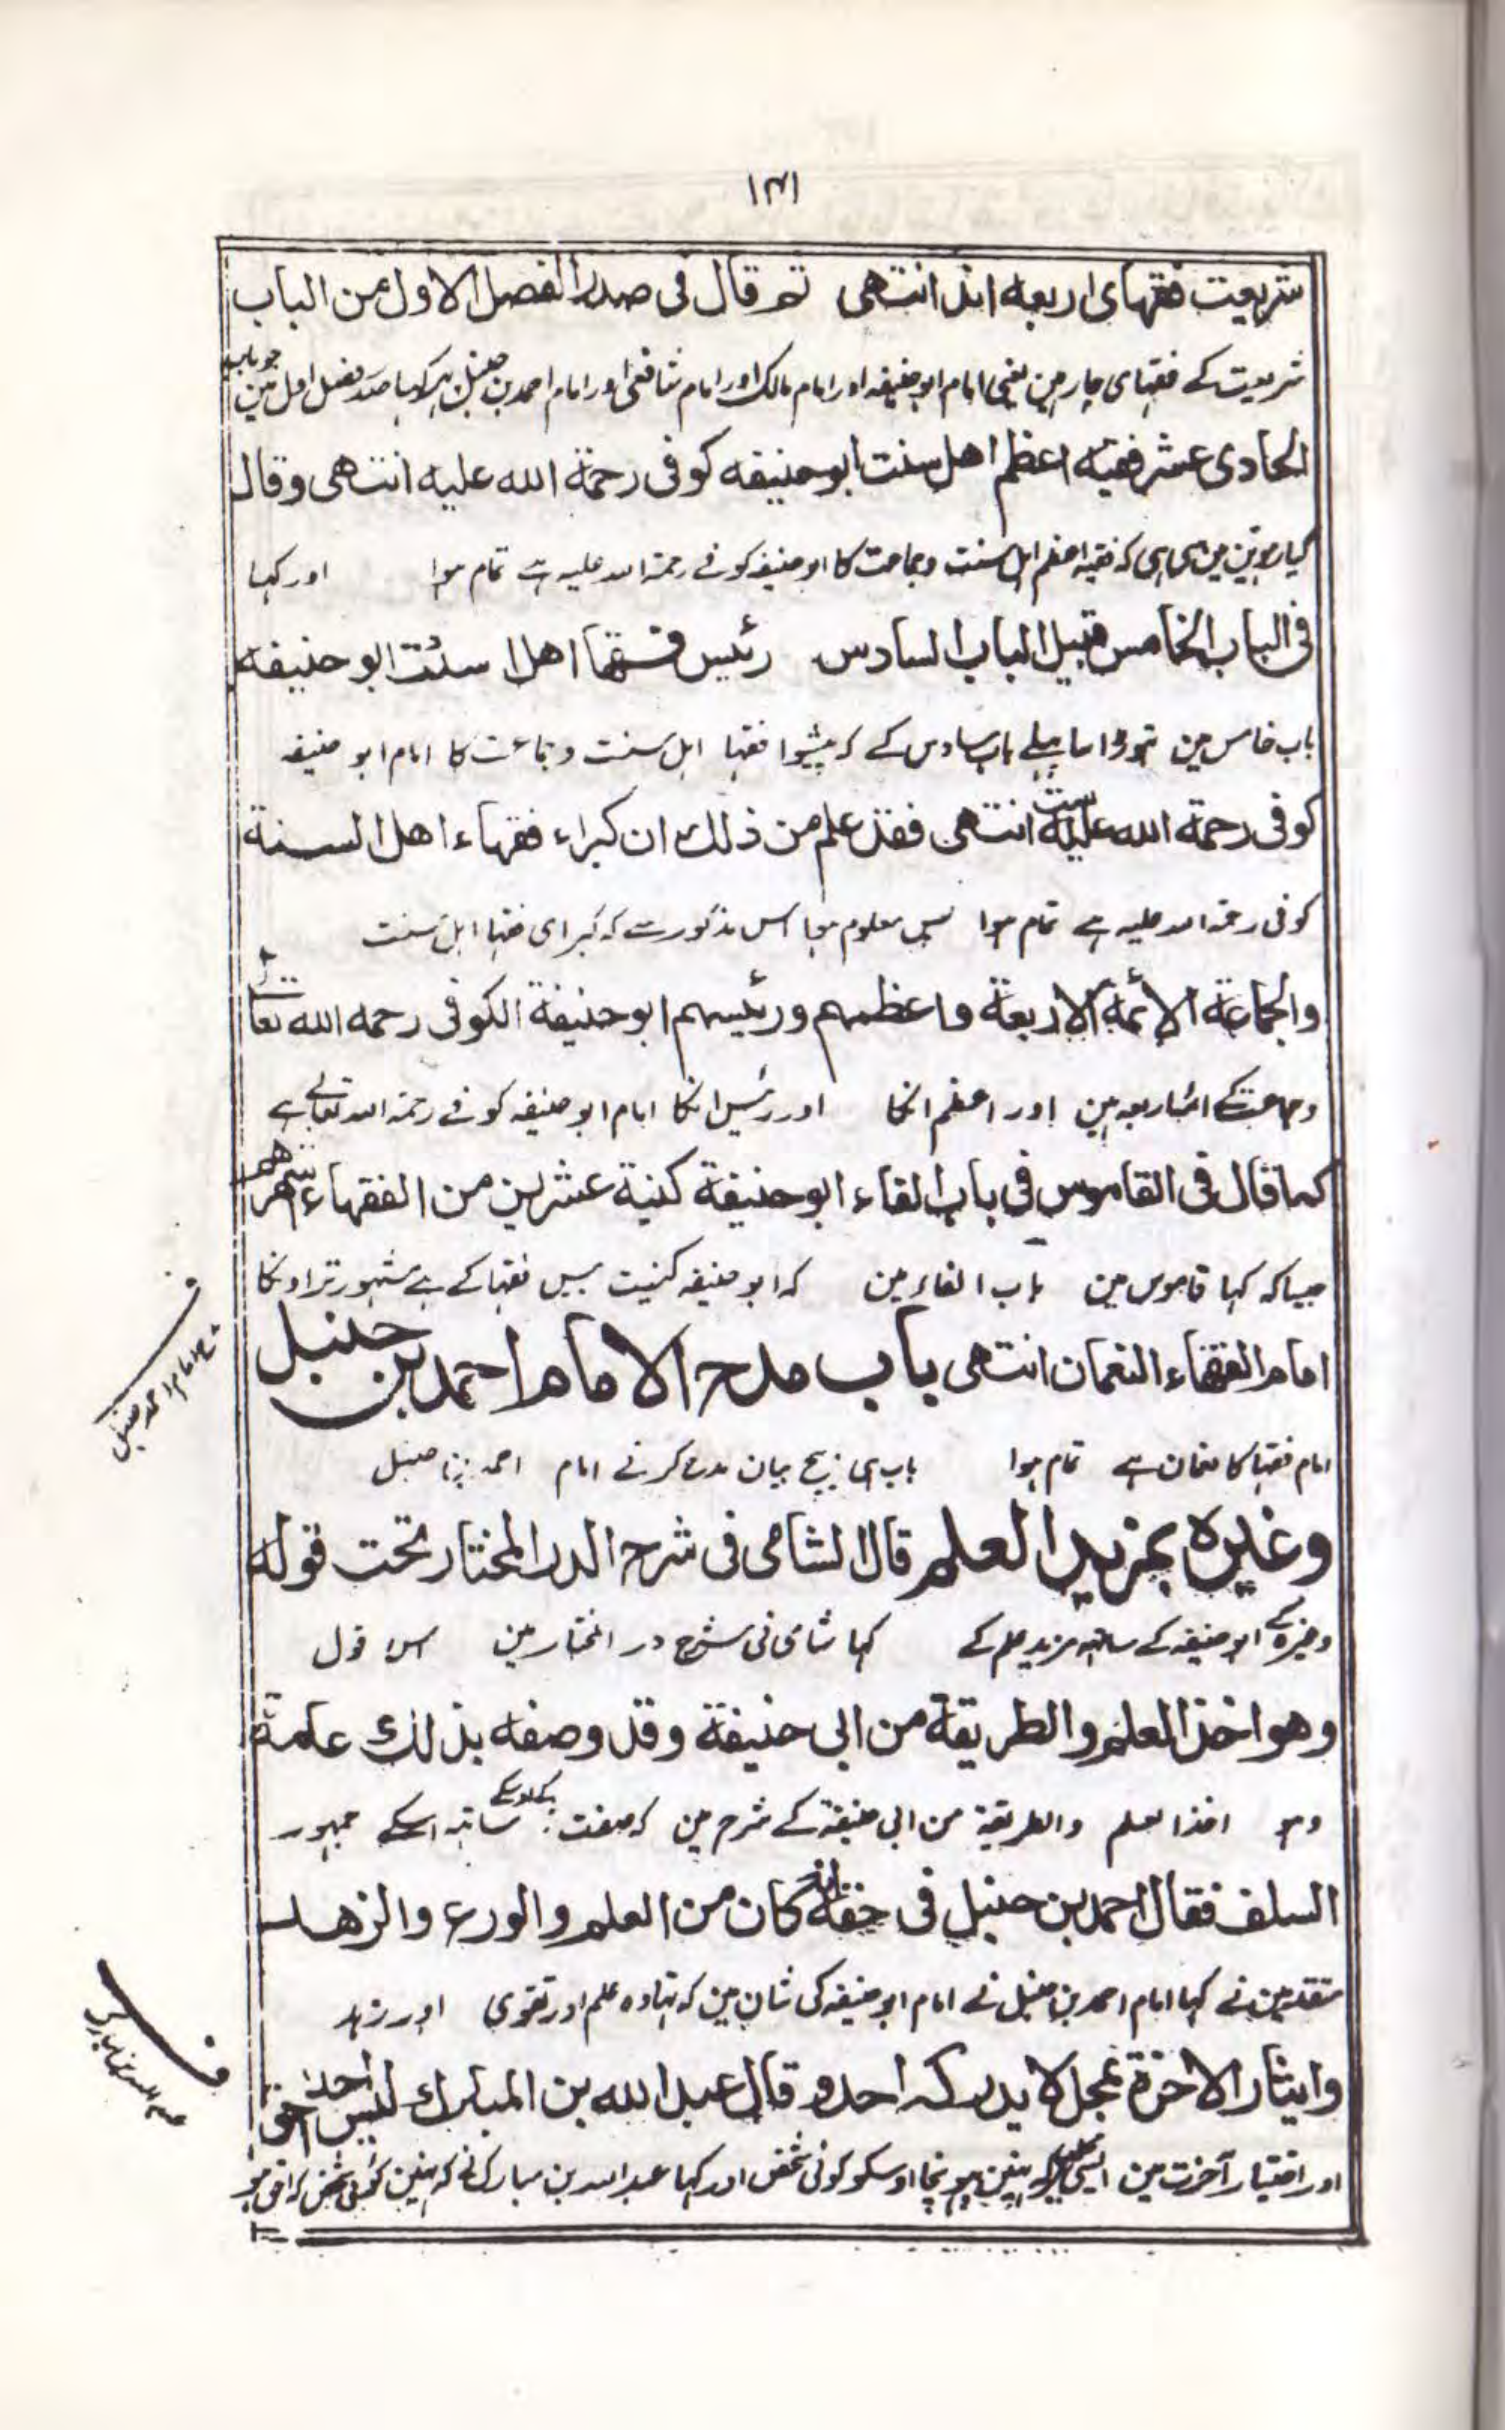 ۱۴۱
شریعت فقهای اربعه اند انتهی ثم قال فی صدر الفصل الاول من الباب
شریعت کے فقہای چار ہین یعنی امام ابو حنیفہ اور امام مالک اور امام شافعی اور امام احمد بن حنبل پہر کہا صدر فصل اول مین جو باب
الحادی عشر فقیه اعظم اهل سنت ابو حنیفه کوفی رحمة الله علیه انتهی وقال
گیارہوین مین ہی کہ فقیہ اعظم اہل سنت وجماعت کا ابو حنیفہ کوفے رحمة اللہ علیہ ہے تمام ہوا اور کہا
فی الباب الخامس قبیل الباب السادس رئیس فقها اهل سنت ابو حنیفه
باب خامس مین تہوڑا سا پہلے باب سادس کے کہ پیشوا فقہا اہل سنت وجماعت کا امام ابو حنیفہ
کوفی رحمة الله علیه ست انتهی فقد علم من ذلك ان کبراء فقهاء اهل السنة
کوفی رحمة اللہ علیہ ہے تمام ہوا پس معلوم ہوا اس مذکور سے کہ کبرای فقہا اہل سنت
والجماعة الائمة الاربعة واعظمهم ورئیسهم ابو حنیفة الکوفی رحمه الله تعالی
وجماعت کے ائمہ اربعہ ہین اور اعظم انکا اور رئیس انکا امام ابو حنیفہ کوفے رحمة اللہ تعالے ہے
کما قال فی القاموس فی باب الفاء ابو حنیفة کنیة عشرین من الفقهاء اشهرهم
جیسا کہ کہا قاموس مین باب الفاء مین کہ ابو حنیفہ کنیت بیس فقہا کے ہے مشہور تر اونکا
امام الفقهاء النعمان انتهی باب مدح الامام احمد بن حنبل
امام فقہا کا نعمان ہے تمام ہوا باب ہی بیچ بیان مدح کرنے امام احمد بن حنبل
وغیره بمزید العلم قال الشامی فی شرح الدر المختار تحت قوله
وغیرہ کے ابو حنیفہ کے ساتہہ مزید علم کے کہا شامی نی شرح در المختار مین اس قول
وهو اخذ العلم والطریقة من ابی حنیفة وقد وصفه بذلك عامة
وہو اخذ العلم والطریقة من ابی حنیفة کے شرح مین کہ صفت ساتہہ اسکے جمہور
السلف فقال احمد بن حنبل فی حقه انه کان من العلم والورع والزهد
متقدمین نے کہا امام احمد بن حنبل نے امام ابو حنیفہ کی شان مین کہ تہا وہ علم اور تقوی اور زہد
وایثار الاخرة بمحل لا یدرکه احد وقال عبد الله بن المبارك لیس احد احق
اور اختیار آخرت مین ایسی نہین پہونچا اوسکو کوئی شخص اور کہا عبد اللہ بن مبارک نے کہ نہین کوئی شخص کہ احق ہو